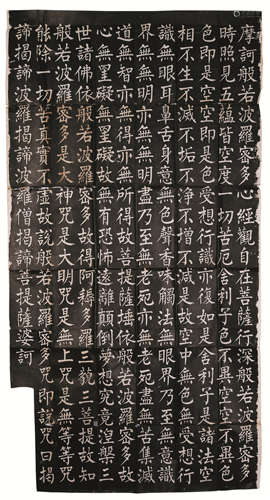 摩訶般若波羅蜜多心經觀自在菩薩行深般若波羅蜜多
時照見五蘊皆空度一切苦厄舍利子色不異空空不異色
色即是空空即是色受想行識亦復如是舍利子是諸法空
相不生不滅不垢不淨不增不減是故空中無色無受想行
識無眼耳鼻舌身意無色聲香味觸法無眼界乃至無意識
界無無明亦無無明盡乃至無老死亦無老死盡無苦集滅
道無智亦無得亦無所得故菩提薩埵依般若波羅蜜多故
心無罣礙無罣礙故無有恐怖遠離顛倒夢想究竟涅槃三
世諸佛依般若波羅蜜多故得阿耨多羅三藐三菩提故知
般若波羅蜜多是大神咒是大明咒是無上咒是無等等咒
能除一切苦真實不虛故說般若波羅蜜多咒即說咒曰揭
諦揭諦波羅揭諦波羅僧揭諦菩提薩婆訶